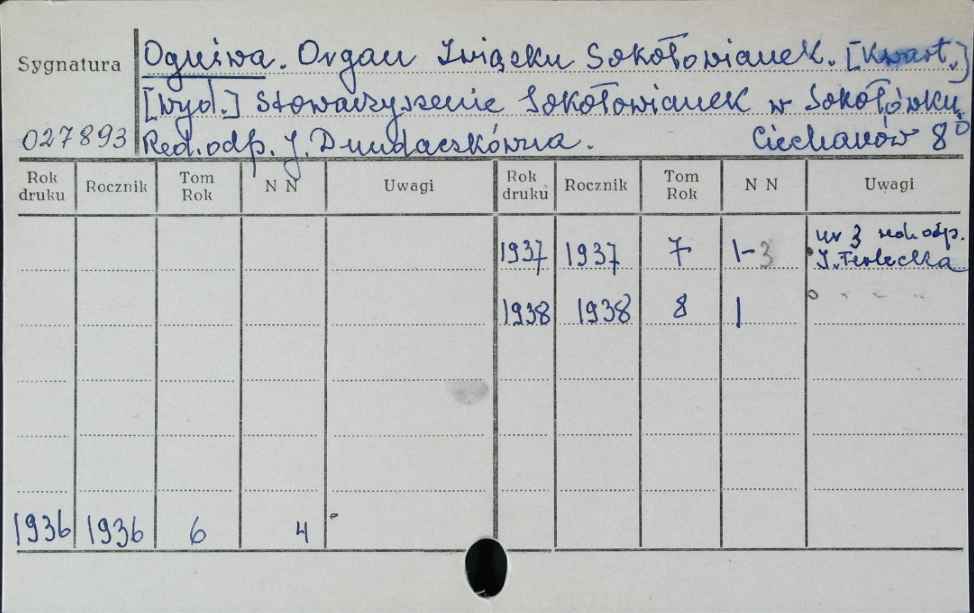 Sygnatura
027893
Ogniwa. Organ Związku Sokołowianek. [Kwart.]
[Wyd.] Stowarzyszenie Sokołowianek w Sokołówku.
Red. odp. J. Dundaczkówna. Ciechanów 8°
Rok druku Rocznik Tom Rok N N Uwagi Rok druku Rocznik Tom Rok N N Uwagi
1937 1937 7 1-3 nr 3 red. odp.
J. Terlecka
1938 1938 8 1 " " "
1936 1936 6 4